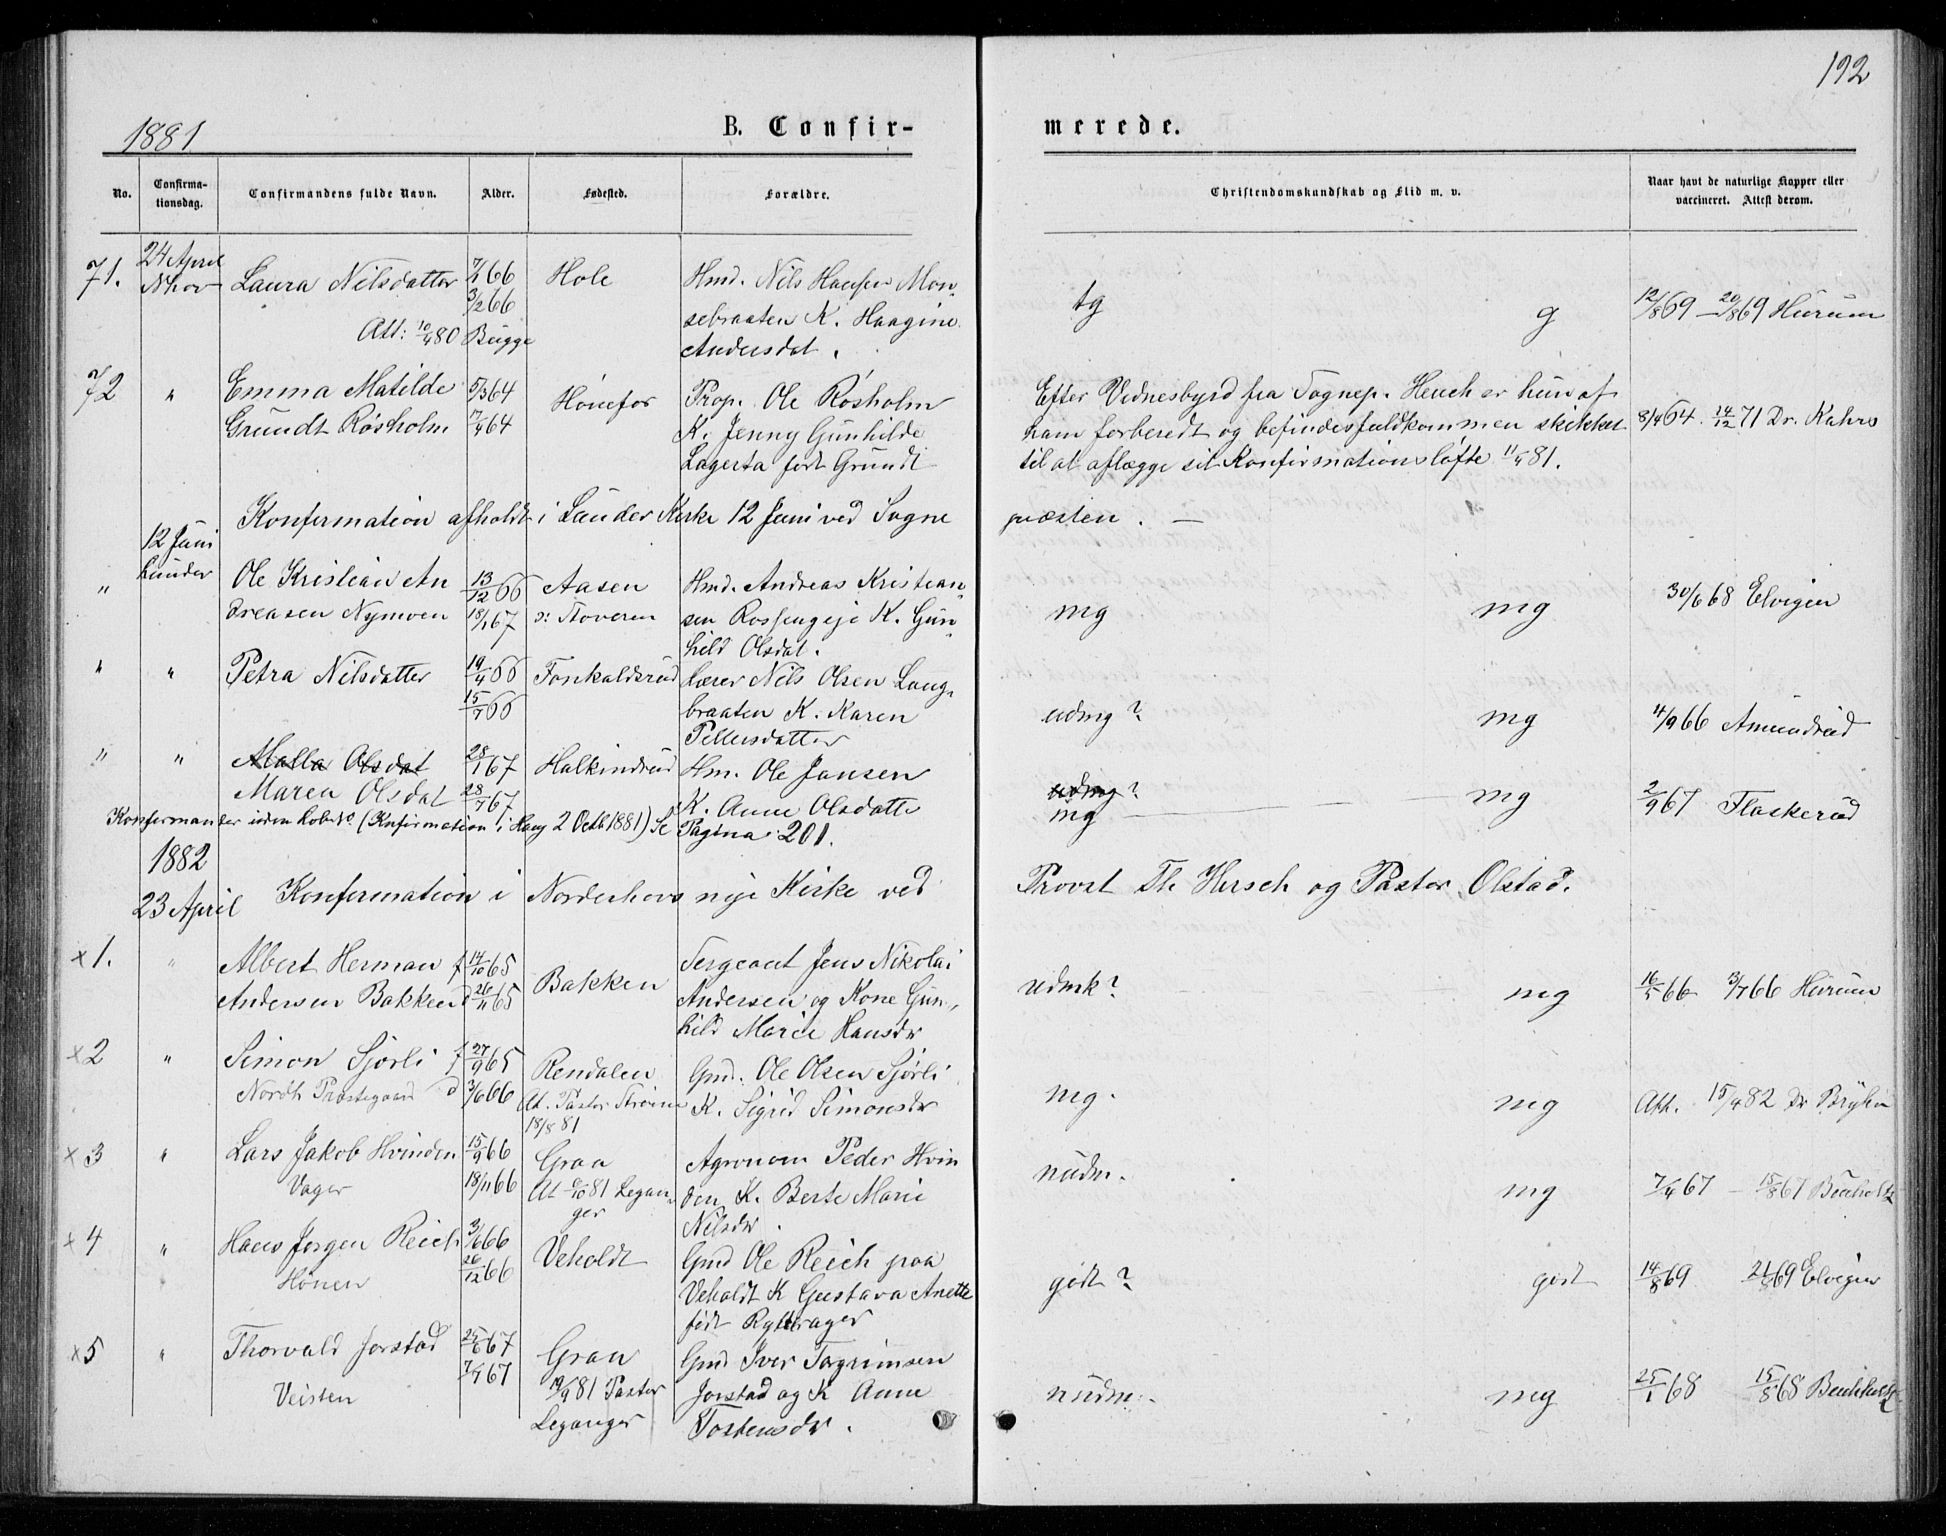 192
1881
B. Confir-
merede.
No.
Confirma-
tionsdag.
Confirmandens fulde Navn.
Alder.
Fødested.
Forældre.
Christendomskundskab og Flid m. v.
Naar havt de naturlige Kopper eller
vaccineret. Attest derom.
71.
24 April
Nhov
Laura Nilsdatter
7/1 66
3/2 66
Att: 10/4 80 Bugge
Hole
Hmd. Nils Hansen Mon-
sebraaten K. Haagine
Andersdat.
tg
g
12/8 69 - 20/8 69 Hurum
72
"
Emma Matilde
Grundt Røsholm
5/3 64
17/4 64
Hønefos
Prop. Ole Røsholm
K. Jenny Gunhilde
Lagerta født Grundt
Efter Vidnesbyrd fra Sognep. Heuch er hun af
ham forberedt og befindes fuldkommen skikket
til at aflægge sit Konfirmationsløfte 11/4 81.
8/4 64. 14/12 71 Dr. Kahrs
Konfirmation afholdt i Lunder Kirke 12 Juni ved Sogne
præsten. -
12 Juni
Lunder
"
Ole Kristian An
dreasen Nymoen
13/12 66
18/1 67
Aasen
ɔ: Stoveren
Hmd. Andreas Kristian-
sen Rossengeje K. Gun-
hild Olsdat.
mg
mg
30/6 68 Elvigen
"
"
Petra Nilsdatter
19/4 66
15/7 66
Fonkaldsrud
Lærer Nils Olsen Lang-
braaten K. Karen
Pettersdatter
udmg?
mg
4/9 66 Amundrud
"
"
Malla Olsdat
Maren Olsdat
28/1 67
28/7 67
Halkindrud
Hm. Ole Jansen
K. Anne Olsdatte
udmg?
mg
mg
2/9 67 Flaskerud
Konfirmander uden (Konfirmation i Haug 2 Octb 1881) Se Pagina 201.
1882
23 April
Konfirmation i Norderhovs nye Kirke ved
Provst Th. Hirsch og Pastor Olstad.
x1.
"
Albert Herman f
Andersen Bakken d
14/10 65
26/11 65
Bakken
Sergeant Jens Nikolai
Andersen og Kone Gun-
hild Marie Hansdr
udmk?
mg
16/5 66 3/7 66 Hurum
x2
"
Simon Sjørli f
Nordh Præstegaard d
27/9 65
3/6 66
Rendalen
At. Pastor Strøm
18/8 81
Gmd. Ole Olsen Sjørli
K. Sigrid Simonsdr
mg.
mg
Att. 15/4 82 Dr Bryhn
x3
"
Lars Jakob Hvinden
Vager
15/9 66
18/11 66
Gran
At 6/10 81 Legan-
ger
Agronom Peder Hvin
den, K. Berte Marie
Nilsdr.
nudm.
mg
7/4 67 - 15/8 67 Buchholtz
x4
"
Hans Jørgen Reich
Hønen
3/6 66
26/12 66
Veholdt
Gmd Ole Reich paa
Veholdt K Gustava Anette
født Rytterager
godt?
godt
14/8 69 21/8 69 Elvigen
x5
"
Thorvald Jorstad
Veisten
25/6 67
7/7 67
Gran
19/9 81 Pastor
Leganger
Gmd Iver Torgrimsen
Jorstad og K Anne
Tostensdr.
nudm.
mg
25/1 68 15/8 68 Buchholtz